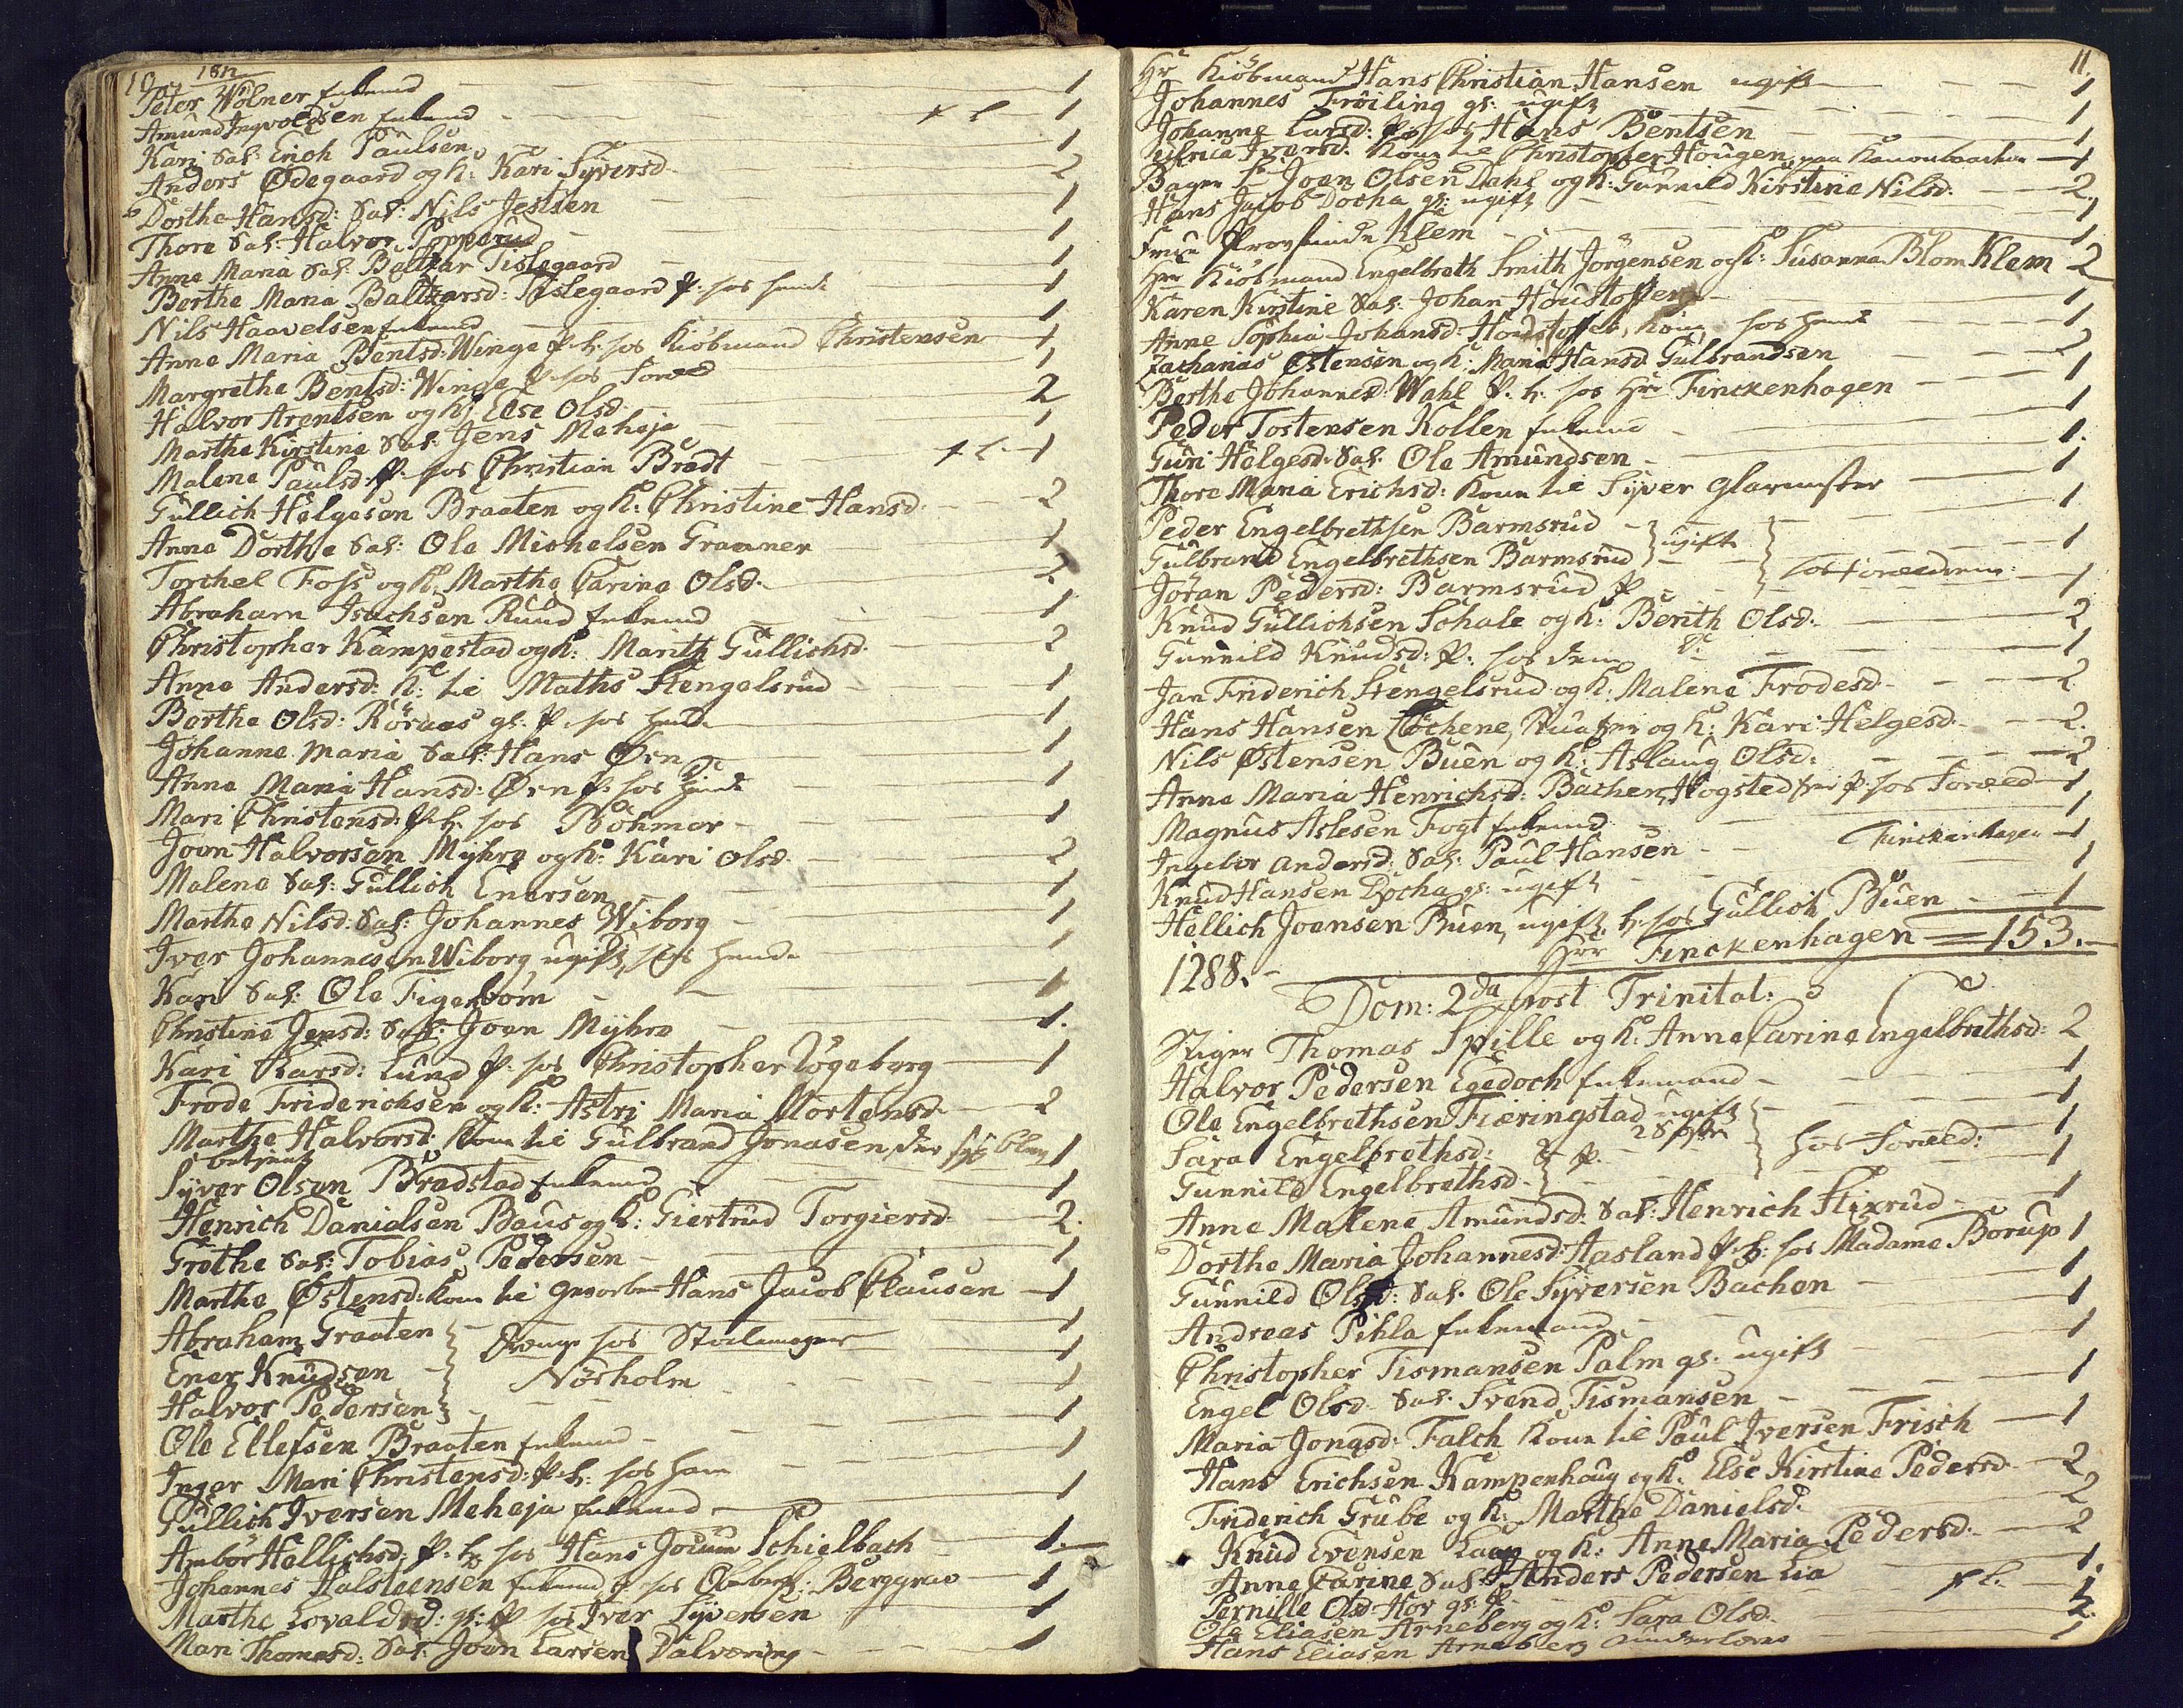 10. 1812
Peter Wölner enkemand - 1
Amund Ingvoldsen enkemand - 1
Kari Sal: Erich Paulsen - 1
Anders Ødegaard og K: Kari Syversd. - 2
Dorthe Hansd: Sal: Nils Jestsen - 1
Thore Sal: Halvor Popperud - 1
Anne Maria Sal: Baltzar Tislegaard - 1
Berthe Maria Baltzarsd: Tislegaard P. hos hende - 1
Nils Haavelsen enkemand - 1
Anne Maria Bentsd: Winge P. h: hos Kiöbmand Christensen - 1
Margrethe Bentsd: Winge P. hos Foræld - 1
Halvor Arentsen og K: Else Olsd. - 2
Marthe Kirstine Sal: Jens Meheja - 1
Malene Paulsd: P. hos Christian Bradt - 1
Gullich Helgesen Braaten og K: Christine Hansd. - 2
Anne Dorthe Sal: Ole Michelsen Graaner - 1
Torchel Foss og K: Marthe Carine Olsd. - 2
Abraham Isachsen Ruud enkemd - 1
Christopher Kampestad og K: Marith Gullichsd. - 2
Anne Andersd: K: til Mathis Stengelsrud - 1
Berthe Olsd: Röraas gl. P. hos hende - 1
Johanne Maria Sal: Hans Örn - 1
Anne Maria Hansd: Örn P. hos hende - 1
Mari Christensd: P. h. hos Böhmer - 1
Joen Halvorsen Myhra og K: Kari Olsd. - 2
Malene Sal: Gullich Enersen - 1
Marthe Nilsd: Sal: Johannes Wiborg - 1
Iver Johannesen Wiborg ugift, hos hende - 1
Kari Sal: Ole Figenbom - 1
Christine Jensd: Sal: Joen Myhra - 1.
Kari Larsd: Lund P. hos Christopher Lögeborg - 1
Frode Friderichsen og K: Astri Maria Mortensd. - 2
Marthe Halvorsd: Kone til Gulbrand Jonasen, der 1
betjent
Syver Olsen Bradstad enkemd - 1
Henrich Danielsen Baus og K: Giertrud Torgiersd. - 2.
Grethe Sal: Tobias Pedersen - 1
Marthe Østensd: Kone til Hans Jacob Clausen - 1
Abraham Graaten - 1
Ener Knudsen - Drenge hos Stoelemager - 1
Halvor Pedersen - Nörholm - 1
Ole Ellefsen Braaten enkemd - 1
Inger Mari Christensd: P. h: hos ham - 1
Gullich Iversen Meheja enkemd - 1
Ambor Hellichsd: P. h. hos Hans Jocum Schielbach - 1.
Johannes Halsteensen enkemd hos Berggrav - 1
Marthe Lovaldsd: gl: P. hos Iver Syversen - 1
Mari Thomasd: Sal: Joen Larsen Dalværing - 1
11.
Hr Kiöbmand Hans Christian Hansen ugift - 1
Johannes Fröiling gl: ugift - 1
Johanne Larsd: P. hos Hans Bentsen - 1
Iversd: Kone til Christopher Hougen, paa - 1
Bager Joen Olsen Dahl og K: Gunnild Kirstine Nilsd. - 2.
Hans Jacob Docha gl: ugift - 1
Frue Provstinde Klem - 1
Hr Kiöbmand Engelbreth Smith Jörgensen og K: Susanna Blom Klem 2
Karen Kirstine Sal: Johan Houstoffer - 1
Anne Sophia Johansd: hos hende - 1
Zacharias Østensen og K: Maria Hansd Gulbrandsen - 2
Berthe Johannesd: Wahl P. h. hos Hr Finckenhagen - 1
Peder Tostensen Kollen enkemd - 1
Guri Helgesd: Sal: Ole Amundsen - 1.
Thore Maria Erichsd: Kone til Syver Glarmester - 1
Peder Engelbrethsen Barmsrud - 1
Gulbrand Engelbrethsen Barmsrud - ugift - 1
Jöran Pedersd: Barmsrud P. - hos Forældrene - 1
Knud Gullichsen Schale og K: Berith Olsd. - 2
Gunnild Knudsd: P. hos dem - 1
Jan Friderich Stengelsrud og K: Malene Frodesd. - 2
Hans Hansen og K: Kari Helgesd. - 2.
Nils Østensen Buen og K: Aslaug Olsd. - 2
Anne Maria Henrichsd: Bachen, Hogsted P. hos Foræld - 1
Magnus Aslesen Fogt enkemd - 1
Ingebor Andersd: Sal: Paul Hansen - Finckenhagen - 1
Knud Hansen Docha gl: ugift - 1
Hellich Joensen Buen, ugift, h: hos Gullich Buen - 1
Hrr Finckenhagen = 153.
1288.
Dom: 2da post Trinitat:
Stiger Thomas Spille og K: Anne Carine Engelbrethsd: 2
Halvor Pedersen Egedoch enkemand - 1
Ole Engelbrethsen Fiæringstad ugift - 1
Sara Engelbrethsd: P. 2 Söstre hos Foræld: - 1
Gunnild Engelbrethsd. - 1
Anne Malene Amundsd: Sal: Henrich Stixrud - 1
Dorthe Maria Johannesd: Aasland P. h: hos Madame Borup 1
Gunnild Olsd: Sal: Ole Syversen Bachen - 1
Andreas Pihla enkemand - 1
Christopher Tismansen Palm gl: ugift - 1
Engel Olsd. Sal: Svend Tismansen - 1
Maria Jonasd: Falch Kone til Paul Iversen Frisch - 1
Hans Erichsen Kampenhaug og K: Else Kirstine Pedersd. - 2
Friderich Grube og K: Marthe Danielsd. 2
Knud Evensen Laag og K: Anne Maria Pedersd. - 2
Anne Carine Sal: Anders Pedersen Lia - 1.
Pernille Olsd: Hov gl: P. - 1
Ole Eliasen Arneberg og K: Sara Olsd. 2.
Hans Eliasen Arneberg - 1